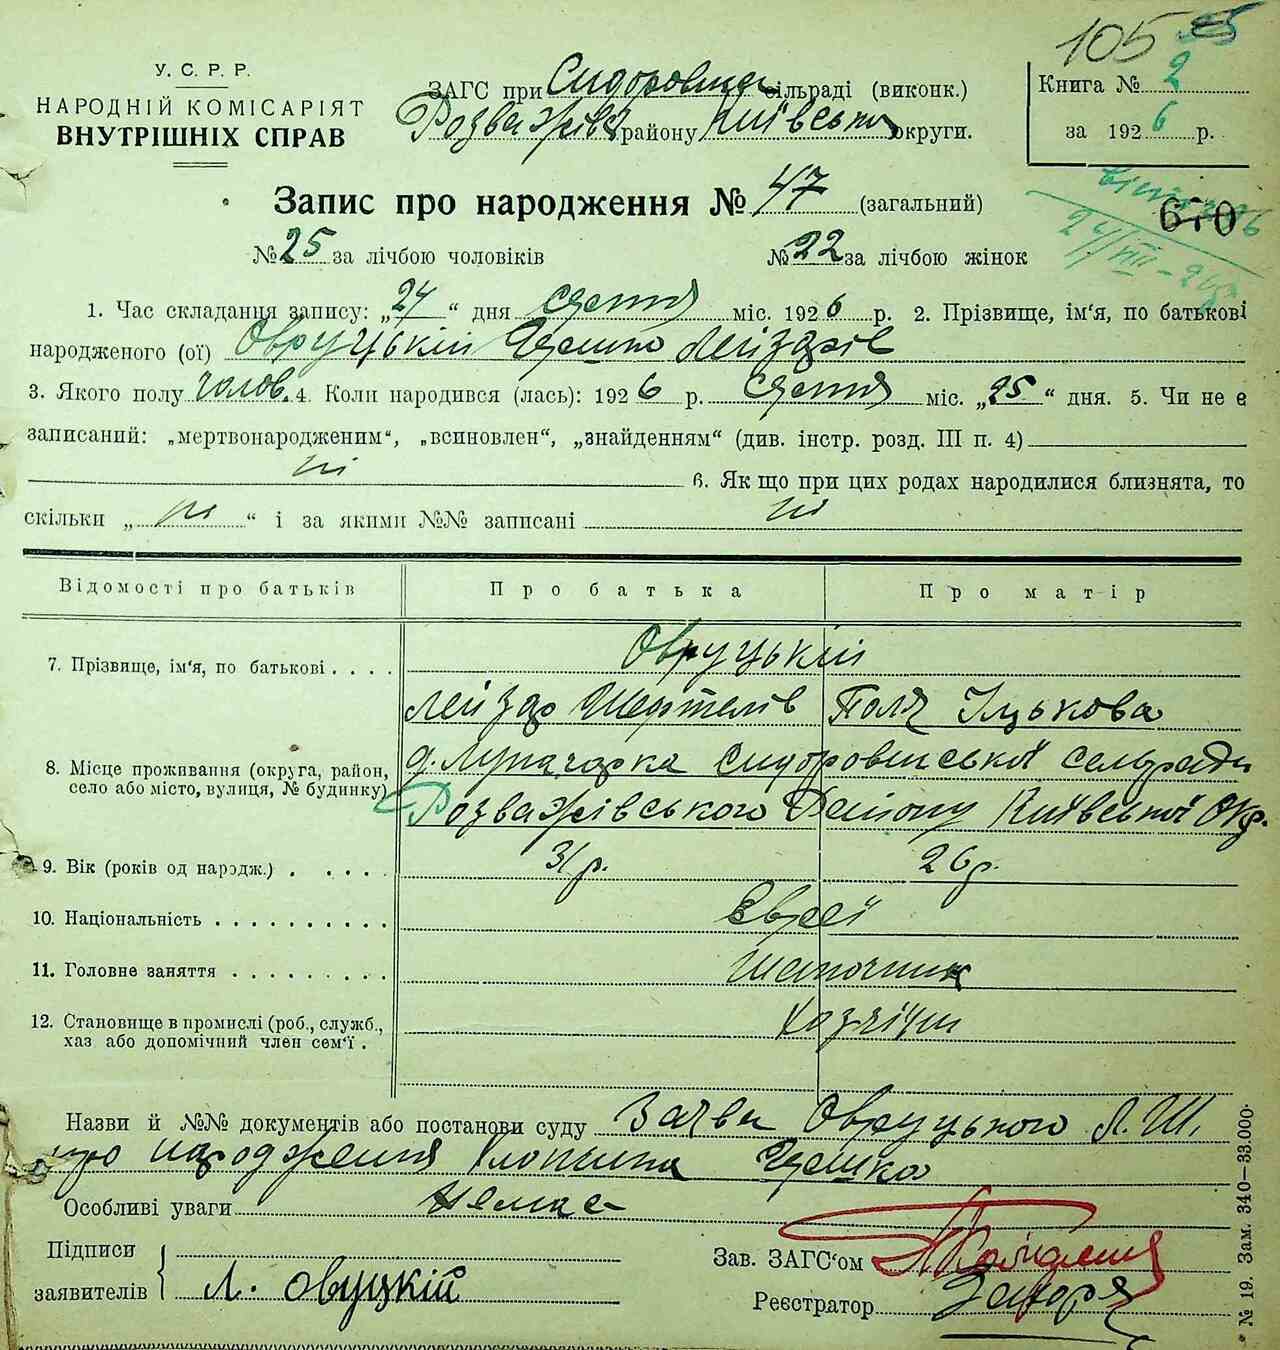 105
У. С. Р. Р.
НАРОДНІЙ КОМІСАРІЯТ
ВНУТРІШНІХ СПРАВ
ЗАГС при сільраді (виконк.)
району округи.
Книга № 2
за 1926 р.
Запис про народження № 47 (загальний)
670
№ 25 за лічбою чоловіків № 22 за лічбою жінок
1. Час складання запису: „24“ дня серпня міс. 1926 р. 2. Прізвище, ім'я, по батькові
народженого (ої) Овруцькій Лейзарів
3. Якого полу чолов. 4. Коли народився (лась): 1926 р. серпня міс. „25“ дня. 5. Чи не є
записаний: „мертвонародженим“, „всиновлен“, „знайденням“ (див. інстр. розд. III п. 4)
ні
6. Як що при цих родах народилися близнята, то
скільки „ ні “ і за якими №№ записані ні
Відомості про батьків Про батька Про матір
Овруцькій
7. Прізвище, ім'я, по батькові . . . .
Лейзар Шефтелів Поля Іцькова
8. Місце проживання (округа, район,
село або місто, вулиця, № будинку)
Розважівського Району Київської Окр.
9. Вік (років од народж.) . . . . . 31 р. 26 р.
10. Національність . . . . . . . . . . Євреї
11. Головне заняття . . . . . . . . . Шапошник
12. Становище в промислі (роб., служб.,
хаз або допомічний член сем'ї .
Хозяїни
Назви й №№ документів або постанови суду Заява Овруцького Л. Ш.
про народження хлопчика
Особливі уваги немає
Підписи
заявителів
Л. Овуцкій
Зав. ЗАГС'ом
Реєстратор
№ 19. Зам. 340—33.000.